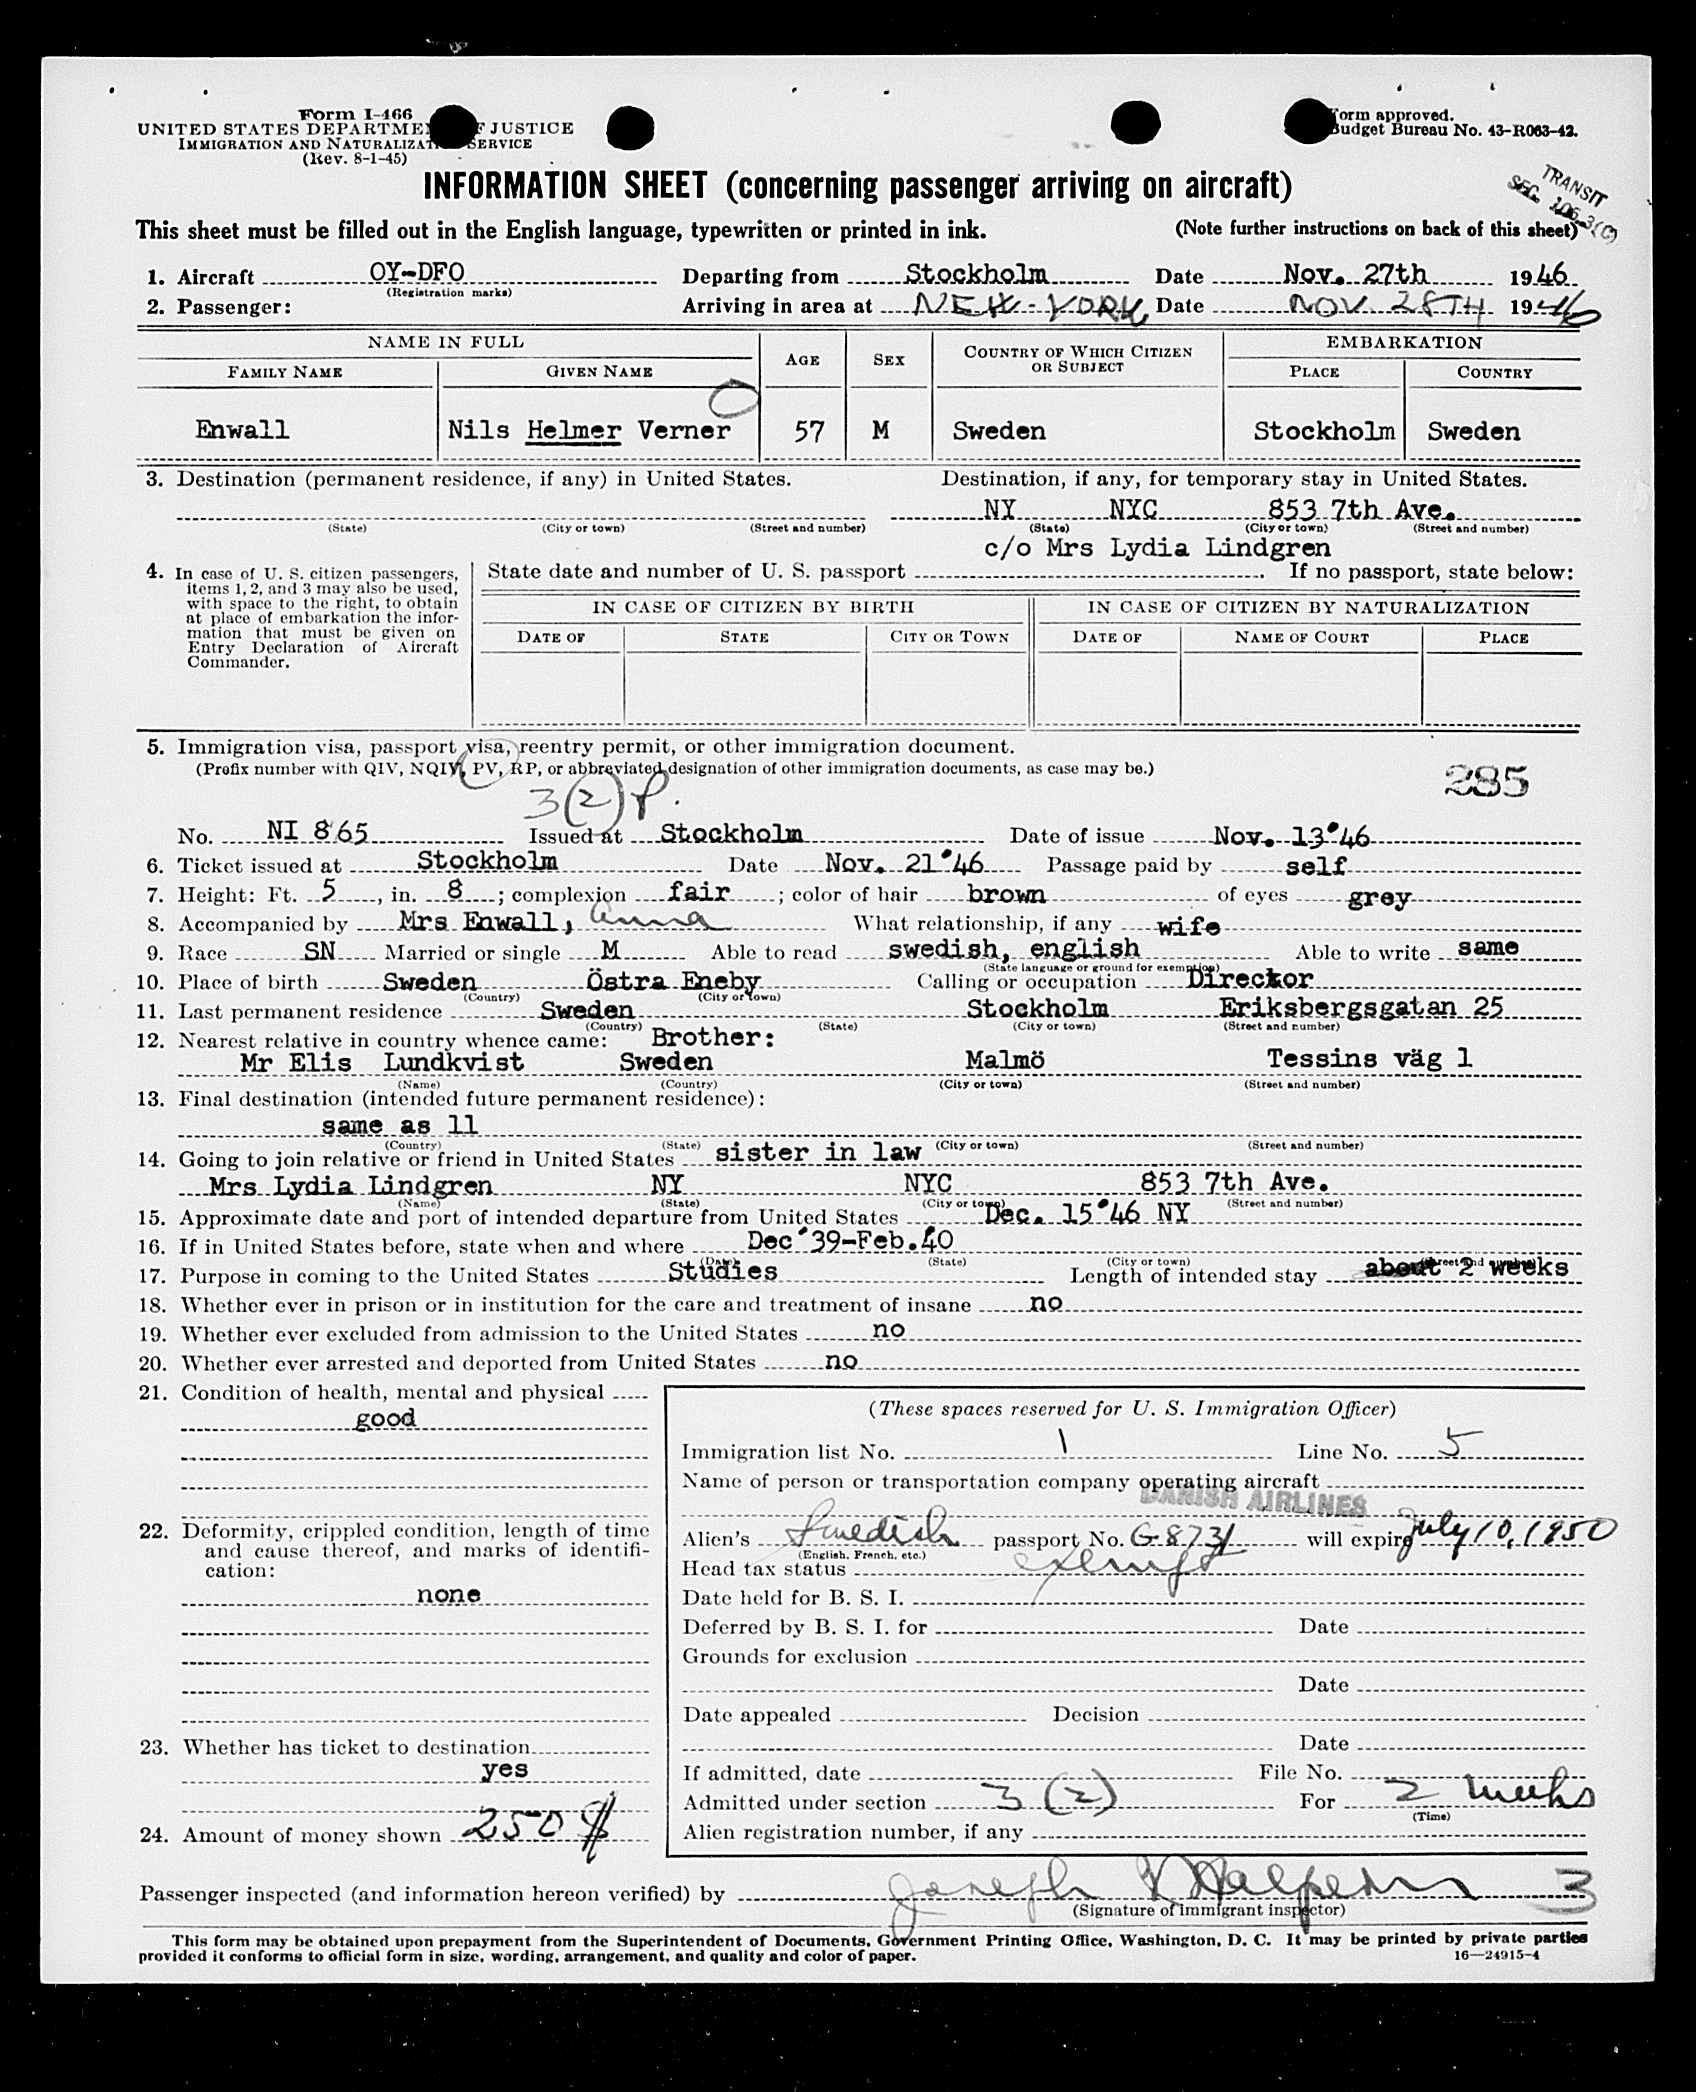 Form I-466
UNITED STATES DEPARTMENT OF JUSTICE
IMMIGRATION AND NATURALIZATION SERVICE
(Rev. 8-1-45)
Form approved.
Budget Bureau No. 43-R063-42.
INFORMATION SHEET (concerning passenger arriving on aircraft)
TRANSIT
SEC. 106.3(C)
This sheet must be filled out in the English language, typewritten or printed in ink. (Note further instructions on back of this sheet)
1. Aircraft OY-DFO Departing from Stockholm Date Nov. 27th 1946
(Registration marks)
2. Passenger: Arriving in area at NEW-YORK Date NOV 28TH 1946
NAME IN FULL AGE SEX COUNTRY OF WHICH CITIZEN OR SUBJECT EMBARKATION
FAMILY NAME GIVEN NAME PLACE COUNTRY
Enwall Nils Helmer Verner 57 M Sweden Stockholm Sweden
3. Destination (permanent residence, if any) in United States. Destination, if any, for temporary stay in United States.
NY NYC 853 7th Ave.
(State) (City or town) (Street and number) (State) (City or town) (Street and number)
c/o Mrs Lydia Lindgren
4. In case of U. S. citizen passengers, items 1, 2, and 3 may also be used, with space to the right, to obtain at place of embarkation the information that must be given on Entry Declaration of Aircraft Commander.
State date and number of U. S. passport . If no passport, state below:
IN CASE OF CITIZEN BY BIRTH IN CASE OF CITIZEN BY NATURALIZATION
DATE OF STATE CITY OR TOWN DATE OF NAME OF COURT PLACE
5. Immigration visa, passport visa, reentry permit, or other immigration document.
(Prefix number with QIV, NQIV, PV, RP, or abbreviated designation of other immigration documents, as case may be.)
285
3(2)P.
No. NI 865 Issued at Stockholm Date of issue Nov. 13'46
6. Ticket issued at Stockholm Date Nov. 21'46 Passage paid by self
7. Height: Ft. 5, in. 8; complexion fair; color of hair brown of eyes grey
8. Accompanied by Mrs Enwall, Anna What relationship, if any wife
9. Race SN Married or single M Able to read swedish, english Able to write same
(State language or ground for exemption)
10. Place of birth Sweden Östra Eneby Calling or occupation Director
(Country) (City or town)
11. Last permanent residence Sweden Stockholm Eriksbergsgatan 25
(Country) (State) (City or town) (Street and number)
12. Nearest relative in country whence came: Brother:
Mr Elis Lundkvist Sweden Malmö Tessins väg 1
(Name) (Country) (City or town) (Street and number)
13. Final destination (intended future permanent residence):
same as 11
(Country) (State) (City or town) (Street and number)
14. Going to join relative or friend in United States sister in law
Mrs Lydia Lindgren NY NYC 853 7th Ave.
(Name) (State) (City or town) (Street and number)
15. Approximate date and port of intended departure from United States Dec. 15'46 NY
16. If in United States before, state when and where Dec'39-Feb.40
(Date) (State) (City or town) (Street and number)
17. Purpose in coming to the United States Studies Length of intended stay about 2 weeks
18. Whether ever in prison or in institution for the care and treatment of insane no
19. Whether ever excluded from admission to the United States no
20. Whether ever arrested and deported from United States no
21. Condition of health, mental and physical
good
22. Deformity, crippled condition, length of time and cause thereof, and marks of identification:
none
23. Whether has ticket to destination
yes
24. Amount of money shown 250 $
(These spaces reserved for U. S. Immigration Officer)
Immigration list No. 1 Line No. 5
Name of person or transportation company operating aircraft
DANISH AIRLINES
Alien's Swedish passport No. G-8731 will expire July 10, 1950
(English, French, etc.)
Head tax status exempt
Date held for B. S. I.
Deferred by B. S. I. for Date
Grounds for exclusion
Date
Date appealed Decision
Date
If admitted, date File No.
Admitted under section 3 (2) For 2 weeks
(Time)
Alien registration number, if any
Passenger inspected (and information hereon verified) by Joseph Halpern 3
(Signature of immigrant inspector)
This form may be obtained upon prepayment from the Superintendent of Documents, Government Printing Office, Washington, D. C. It may be printed by private parties
provided it conforms to official form in size, wording, arrangement, and quality and color of paper. 16—24915-4